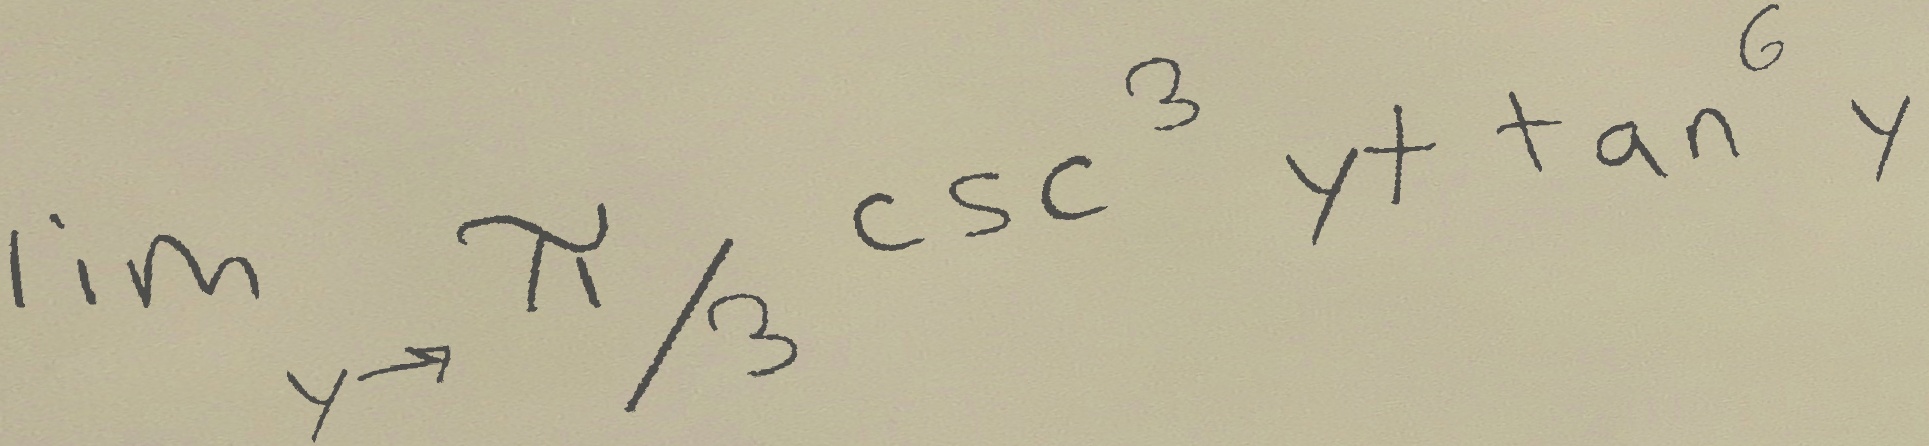 lim y→π/3 csc^3 y + tan^6 y